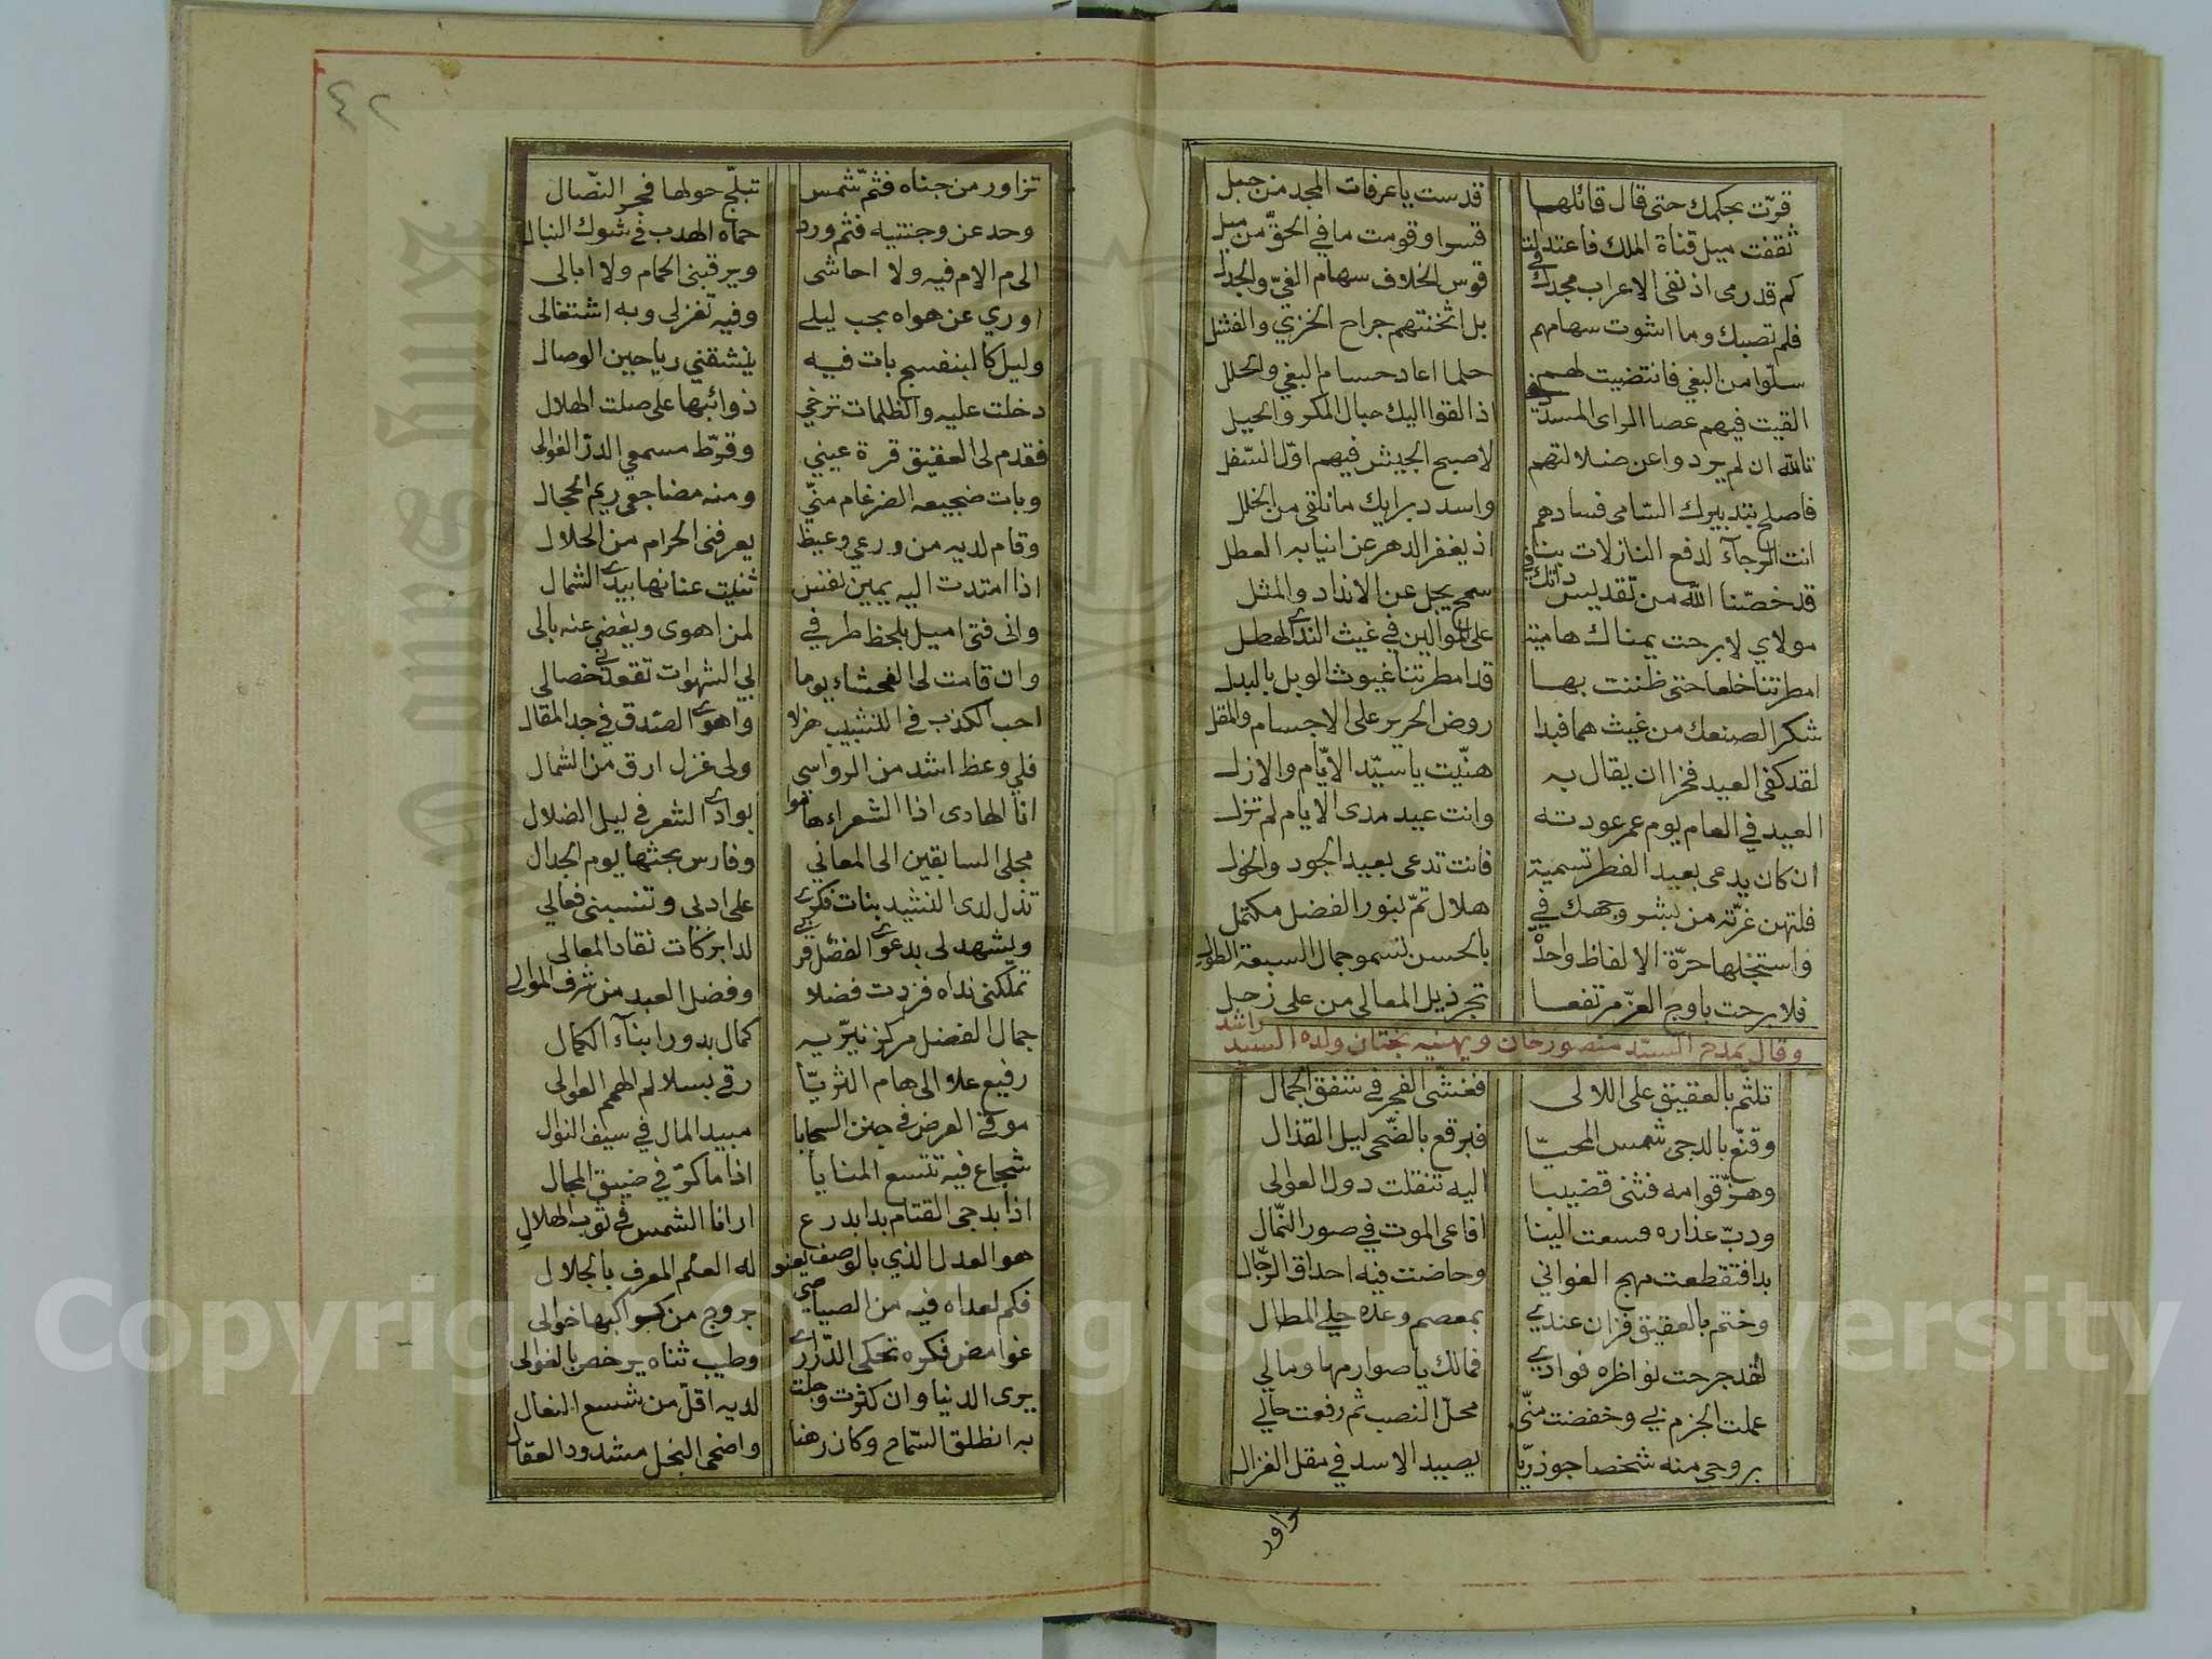 قوّت بحكمك حتى قال قائلها قدست يا عرفات المجد من جبل
ثقفت ميل قناة الملك فاعتدلت قسوا وقومت ما في الحقّ من ميل
كم قد رمى اذ نفى الاعراب مجدك في قوس الخلاف سهام الغيّ والجدل
فلم تصبك وما اشوت سهامهم بل اثخنتهم جراح الخزي والفشل
سلّوا من البغي فانتضيت لهم حلما اعاد حسام البغي والخلل
القيت فيهم عصا الراى المسدد اذ القوا اليك حبال المكر والحيل
تالله ان لم يردوا عن ضلالتهم لاصبح الجيش فيهم اوّل السّفل
فاصلح بتدبيرك السّامى فسادهم واسدد برايك ما نلقى من الخلل
انت الرجآء لدفع النازلات بنا اذ يفغر الدهر عن انيابه العطل
قد خصّنا الله من تقديس ذاتك في سمح يجل عن الانداد والمثل
مولاي لا برحت يمناك هامية على الموالين في غيث الندى الهطل
امطرتنا خلعا حتى ظننت بها قد امطرتنا غيوث الوبل بالبدل
شكرا لصنعك من غيث همى فبدا روض الحرير على الاجسام والمقل
لقد كفى العيد فخرا ان يقال به هنّيت يا سيّد الايّام والازل
العيد في العام يوم عمر عودته وانت عيد مدى الايام لم تزل
ان كان يدعى بعيد الفطر تسمية فانت تدعى بعيد الجود والخول
فلتهن غرّته من بشر وجهك في هلال تمّ بنور الفضل مكتمل
واستجلها حرّة الالفاظ واحدة بالحسن تسمو جمال السبعة الطول
فلا برحت باوج العزّ مرتفعا تجر ذيل المعالى من على زحل
وقال يمدح السيد منصور خان ويهنيه بختان ولده السيد راشد
تلثّم بالعقيق على اللالى فغشّى الفجر في شفق الجمال
وقنّع بالدجى شمس المحيّا فبرقع بالضّحى ليل القذال
وهزّ قوامه فثنى قضيبا اليه تنقلت دول العوالى
ودبّ عذاره فسعت الينا افاعى الموت في صور النّمال
بدا فتقطعت مهج الغوانى وحاضت فيه احداق الرّجال
وختم بالعقيق فزان عندي بمعصم وعده حلي المطال
لقد جرحت نواظره فوادي فمالك يا صوارمها ومالي
عملت الجزم بي وخفضت منّى محلّ النصب ثم رفعت حالي
بروحي منه شخصا جوذريّا يصيد الاسد في مقل الغزال
تزاور
٤٢
تزاور من جناه فثمّ شمس تبلّج حولها فجر النّصال
وحد عن وجنتيه فثم ورد حماه الهدب في شوك النبال
الى م الام فيه ولا احاشى ويرقبنى الحمام ولا ابالى
اوري عن هواه بحب ليلى وفيه تغزلى وبه اشتغالى
وليل كالبنفسج بات فيه ينشقني رياحين الوصال
دخلت عليه والظلمات ترخي ذوائبها على صلت الهلال
فقدم لى العقيق قرة عيني وقرّط مسمعي الدرّ الغوالى
وبات ضجيعه الضرغام منّي ومنه مضاجعى ريم الحجال
وقام لديه من ورعي وعيظ يعرفنى الحرام من الحلال
اذا امتدت اليه يمين نفس ثنيت عنانها بيد الشمال
وانى فتى اميل بلحظ طرفي لمن اهوى ويغضى عنه بالى
وان قامت لى الفحشاء يوما لى الشهوات تقعد بي خصالى
احب الكذب في التشبيب هزلا واهوى الصّدق في جد المقال
فلي وعظ اشد من الرواسي ولى غزل ارق من الشمال
انا الهادى اذا الشعراء هاموا بوادي الشعر في ليل الضلال
مجلى السابقين الى المعانى وفارس بحثها يوم الجدال
تدل لدى النشيد بنات فكري على ادبى وتنسبنى فعالى
ويشهد لى بدعوى الفضل قربي لدا بركات نقاد المعالى
تملكنى نداه فزدت فضلا وفضل العبد من شرف الموالى
جمال الفضل مركز نيّريه كمال بدور ابنآء الكمال
رفيع علا الى هام الثريّا رقى بسلالم الهمم العوالى
موقي العرض في جنن السجايا مبيد المال في سيف النوال
شجاع فيه تتسع المنايا اذا ما كرّ في ضيق المجال
اذا بدجى القتام بدا بدرع ارانا الشمس في ثوب الهلال
هو العدل الذي بالوصف يعنو له العلم المعرف بالجلال
فكم لعداه فيه من الصياصي بروج من كواكبها خوالى
غوامض فكره تحكى الدّراري وطيب ثناه يرخص بالغوالى
يرى الدنيا وان كثرت وجلت لديه اقلّ من شسع النعال
به انطلق السّماح وكان رهنا واضحى البخل مشدود العقال